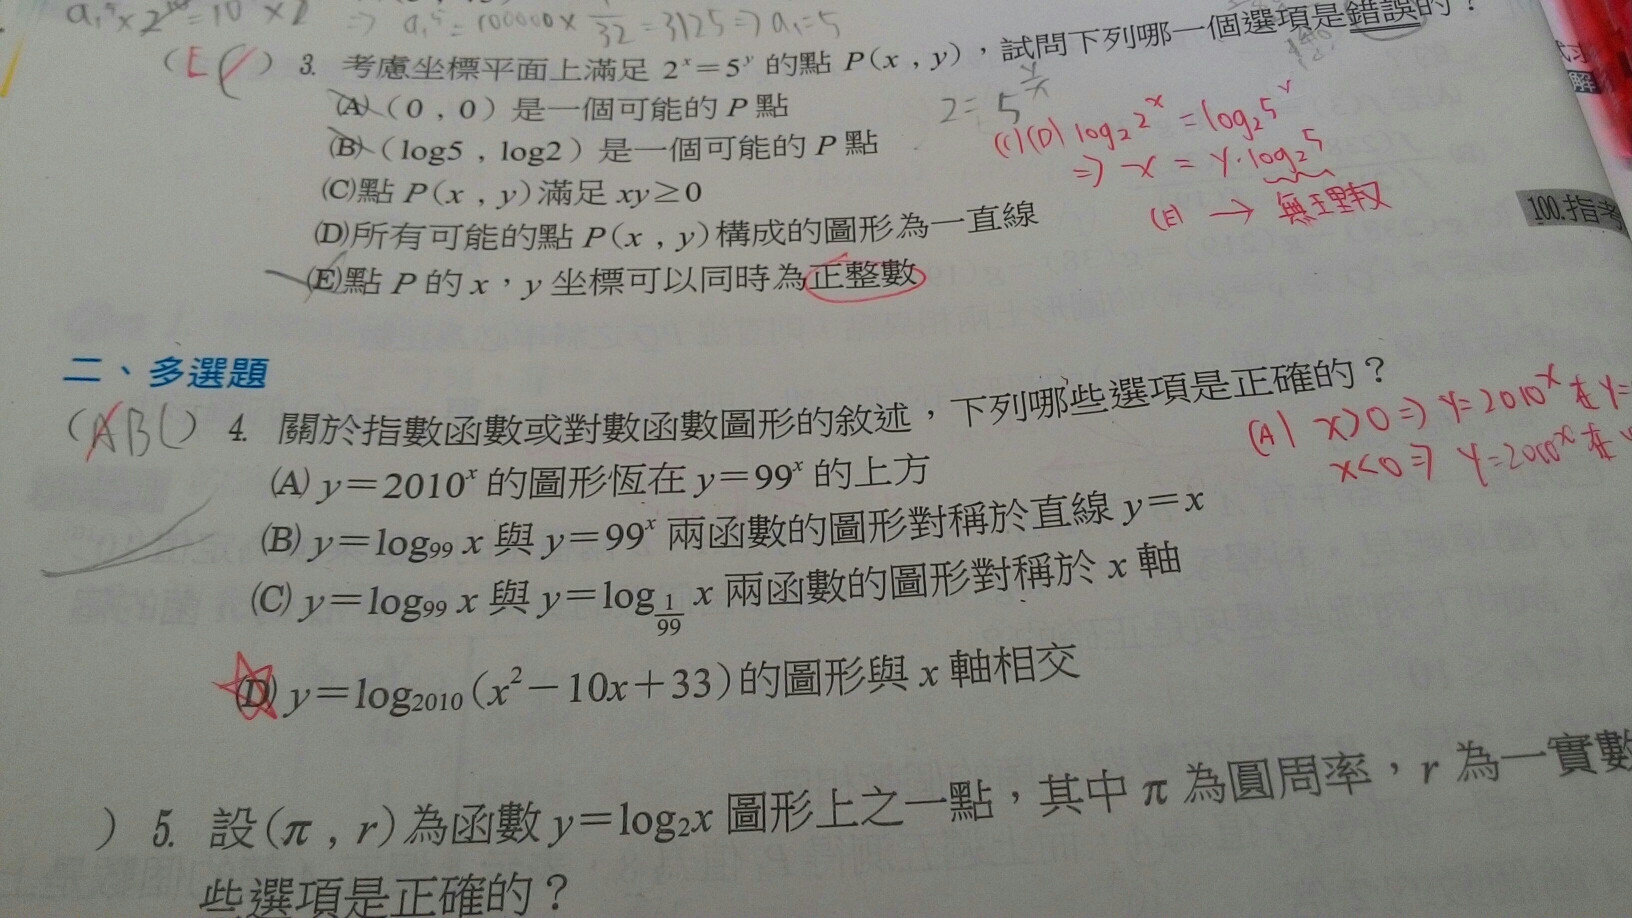 a₁⁵×2¹⁰=10⁵×2
⇒ a₁⁵=100000×1/32=3125⇒a₁=5
(E) 3. 考慮坐標平面上滿足 2ˣ=5ʸ 的點 P(x , y)，試問下列哪一個選項是錯誤的？
(A)(0 , 0)是一個可能的 P 點
(B)(log5 , log2)是一個可能的 P 點
(C)點 P(x , y)滿足 xy≥0
(D)所有可能的點 P(x , y)構成的圖形為一直線
(E)點 P 的 x，y 坐標可以同時為正整數
2=5^(y/x)
(C)(D) log₂2ˣ=log₂5ʸ
⇒ x=y·log₂5
(E) → 無理數
100.指考
解
二、多選題
(ABC) 4. 關於指數函數或對數函數圖形的敘述，下列哪些選項是正確的？
(A) y=2010ˣ 的圖形恆在 y=99ˣ 的上方
(B) y=log₉₉ x 與 y=99ˣ 兩函數的圖形對稱於直線 y=x
(C) y=log₉₉ x 與 y=log_(1/99) x 兩函數的圖形對稱於 x 軸
(D) y=log₂₀₁₀(x²−10x+33)的圖形與 x 軸相交
(A) x>0⇒y=2010ˣ在y=
x<0⇒y=2010ˣ在
) 5. 設(π , r)為函數 y=log₂x 圖形上之一點，其中 π 為圓周率，r 為一實數
些選項是正確的？